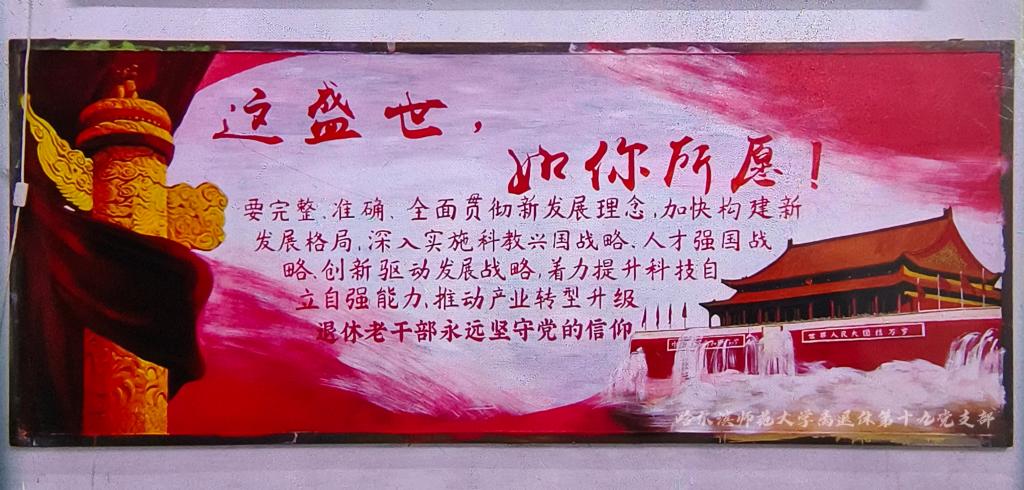 这盛世,
如你所愿!
要完整、准确、全面贯彻新发展理念,加快构建新
发展格局,深入实施科教兴国战略、人才强国战
略、创新驱动发展战略,着力提升科技自
立自强能力,推动产业转型升级
退休老干部永远坚守党的信仰
世界人民大团结万岁
哈尔滨师范大学离退休第十九党支部